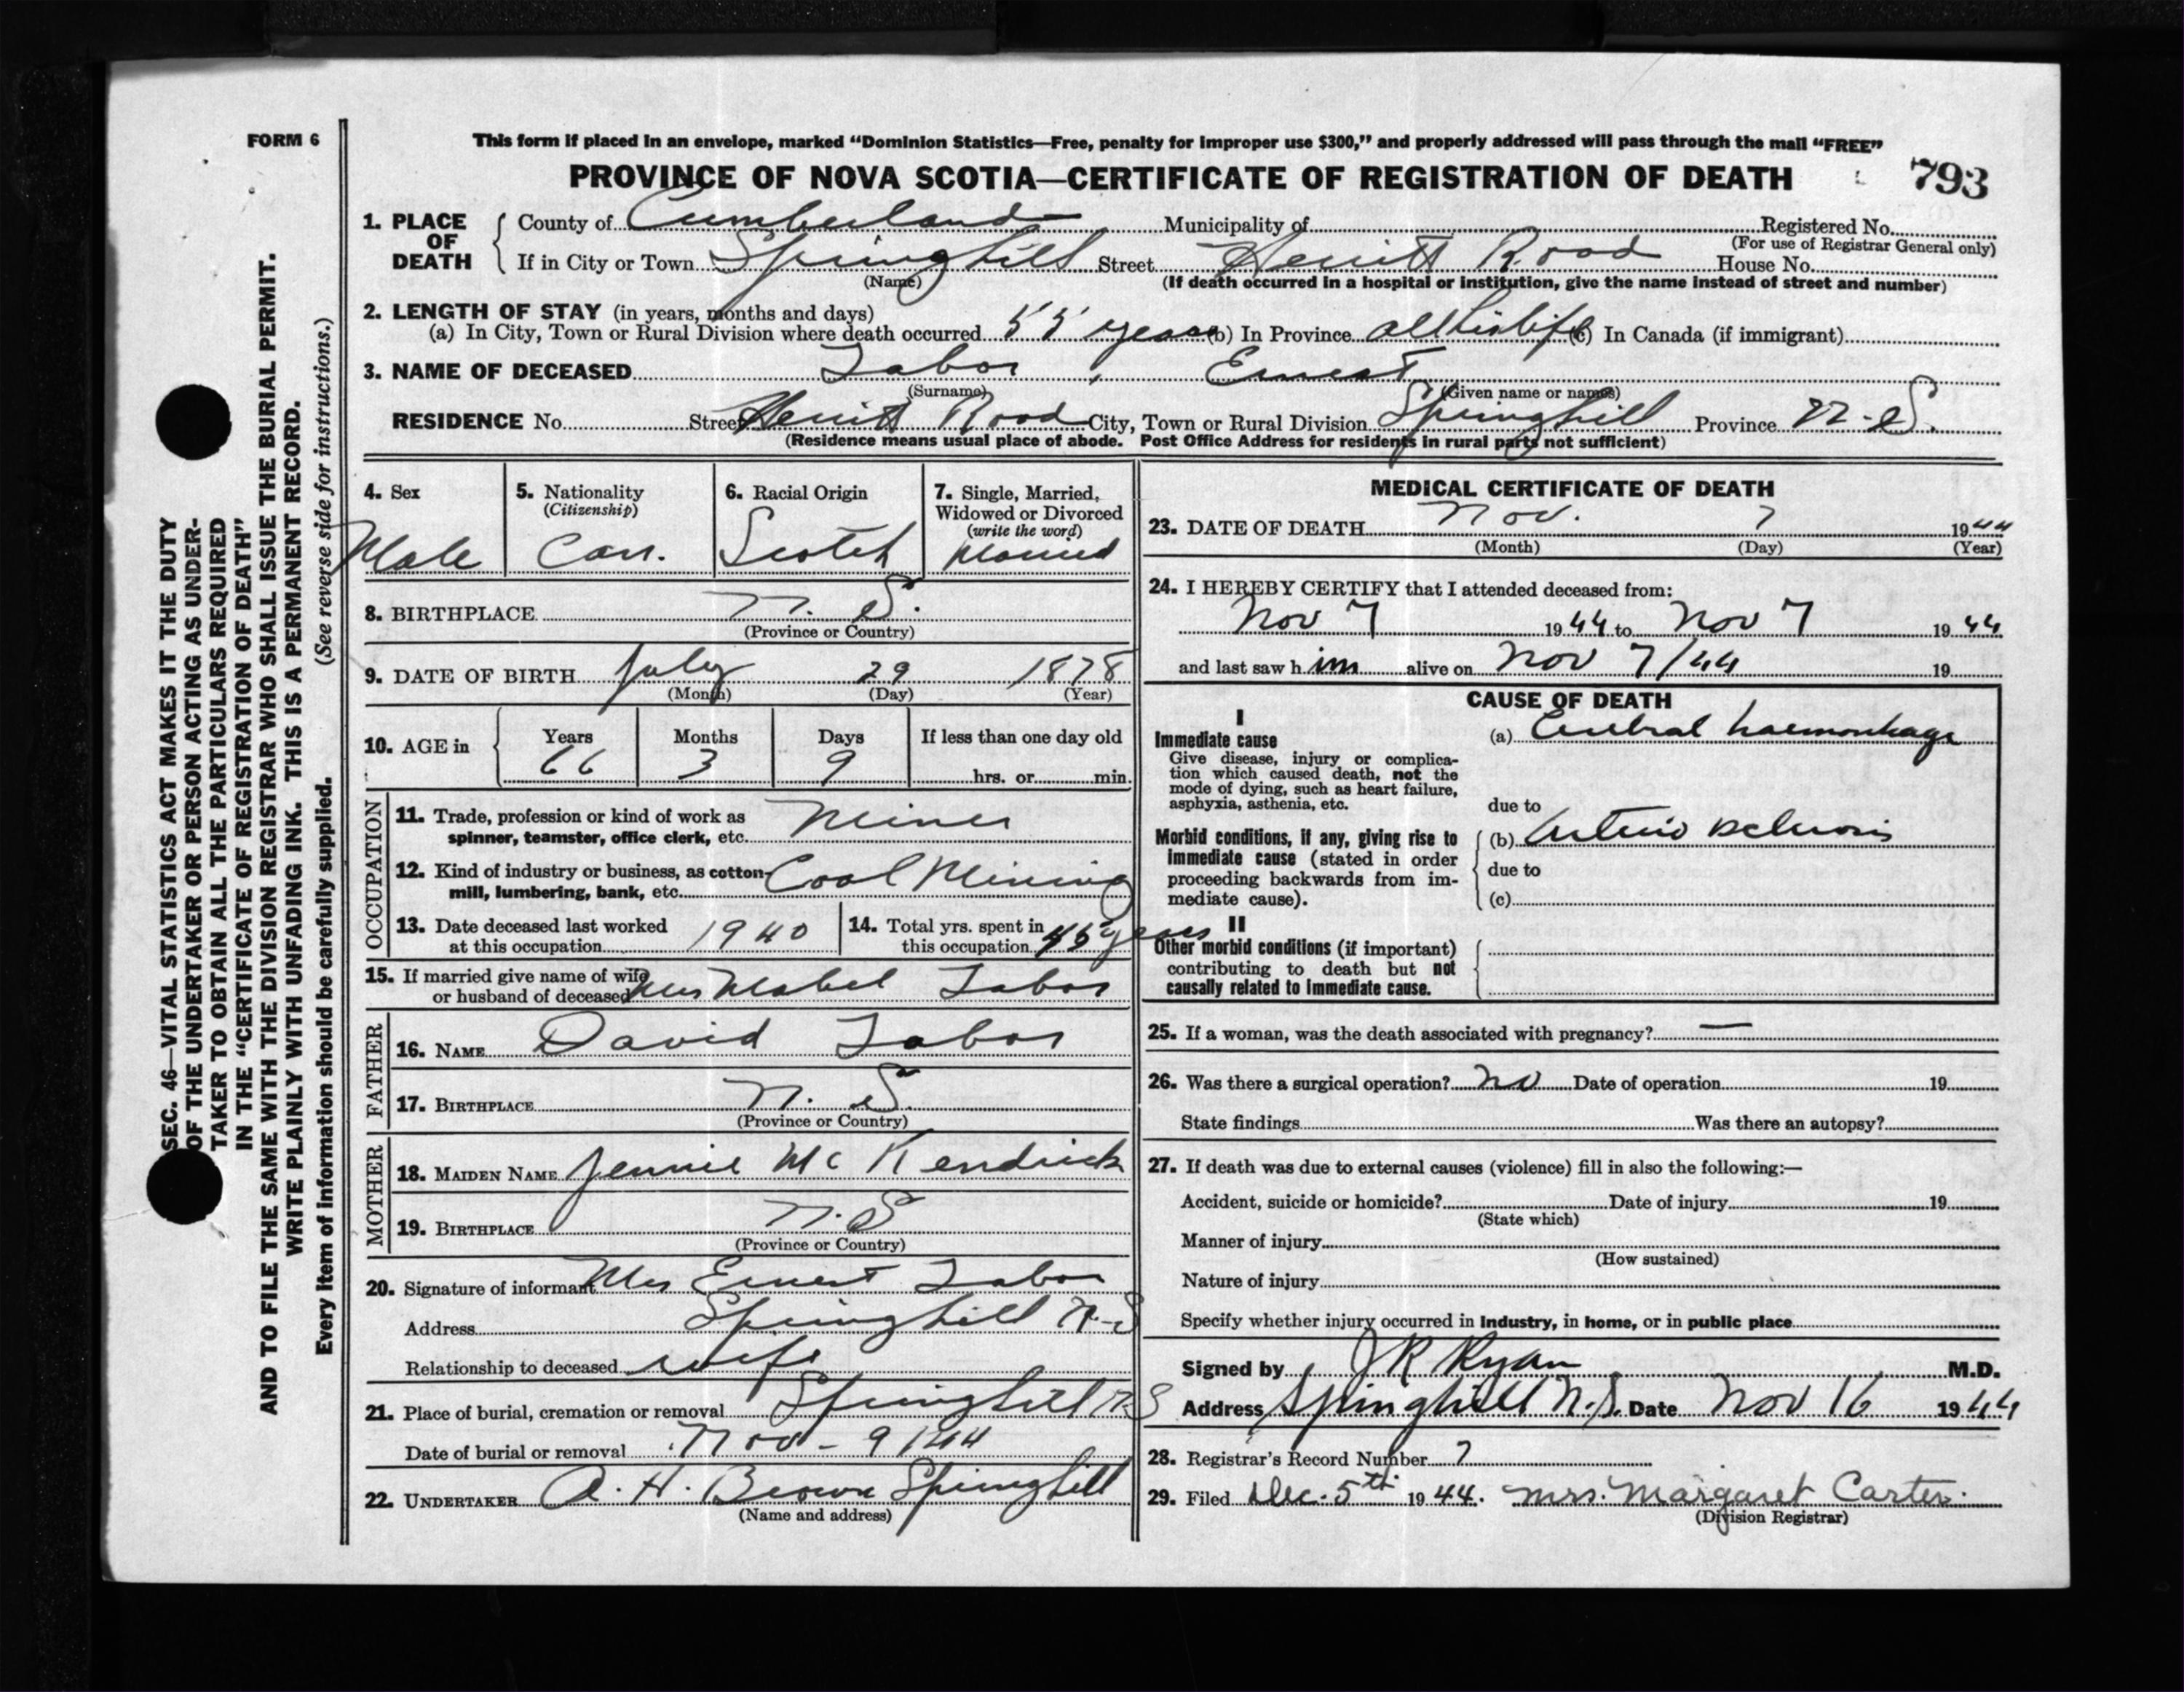 FORM 6
This form if placed in an envelope, marked “Dominion Statistics—Free, penalty for improper use $300,” and properly addressed will pass through the mail “FREE”
PROVINCE OF NOVA SCOTIA—CERTIFICATE OF REGISTRATION OF DEATH
793
1. PLACE OF DEATH
County of Cumberland Municipality of Registered No.
(For use of Registrar General only)
If in City or Town Springhill Street Herritt Road House No.
(Name) (If death occurred in a hospital or institution, give the name instead of street and number)
2. LENGTH OF STAY (in years, months and days)
(a) In City, Town or Rural Division where death occurred 55 years (b) In Province all his life (c) In Canada (if immigrant)
3. NAME OF DECEASED Tabor, Ernest
(Surname) (Given name or names)
RESIDENCE No. Street Herritt Road City, Town or Rural Division Springhill Province N.S.
(Residence means usual place of abode. Post Office Address for residents in rural parts not sufficient)
4. Sex
Male
5. Nationality
(Citizenship)
Can.
6. Racial Origin
Scotch
7. Single, Married,
Widowed or Divorced
(write the word)
Married
8. BIRTHPLACE N. S.
(Province or Country)
9. DATE OF BIRTH July 29 1878
(Month) (Day) (Year)
10. AGE in
Years Months Days If less than one day old
66 3 9 hrs. or min.
OCCUPATION
11. Trade, profession or kind of work as
spinner, teamster, office clerk, etc. Miner
12. Kind of industry or business, as cotton-
mill, lumbering, bank, etc. Coal Mining
13. Date deceased last worked
at this occupation 1940
14. Total yrs. spent in
this occupation 45 years
15. If married give name of wife
or husband of deceased Mrs Mabel Tabor
FATHER
16. NAME David Tabor
17. BIRTHPLACE N. S.
(Province or Country)
MOTHER
18. MAIDEN NAME Jennie McKendrick
19. BIRTHPLACE N.S
(Province or Country)
20. Signature of informant Mrs Ernest Tabor
Address Springhill N-S
Relationship to deceased wife
21. Place of burial, cremation or removal Springhill N S
Date of burial or removal Nov - 9/44
22. UNDERTAKER A. H. Brown Springhill
(Name and address)
MEDICAL CERTIFICATE OF DEATH
23. DATE OF DEATH Nov. 7 1944
(Month) (Day) (Year)
24. I HEREBY CERTIFY that I attended deceased from:
Nov 7 1944 to Nov 7 1944
and last saw h im alive on Nov 7/44 19
CAUSE OF DEATH
I
Immediate cause
Give disease, injury or complica-
tion which caused death, not the
mode of dying, such as heart failure,
asphyxia, asthenia, etc.
(a) Cerebral haemorrhage
due to
Morbid conditions, if any, giving rise to
immediate cause (stated in order
proceeding backwards from im-
mediate cause).
(b) Arterio sclerosis
due to
(c)
II
Other morbid conditions (if important)
contributing to death but not
causally related to immediate cause.
25. If a woman, was the death associated with pregnancy? —
26. Was there a surgical operation? No Date of operation 19
State findings Was there an autopsy?
27. If death was due to external causes (violence) fill in also the following:—
Accident, suicide or homicide? Date of injury 19
(State which)
Manner of injury
(How sustained)
Nature of injury
Specify whether injury occurred in industry, in home, or in public place
Signed by J R Ryan M.D.
Address Springhill N.S. Date Nov 16 1944
28. Registrar's Record Number 7
29. Filed Dec. 5th 1944. Mrs. Margaret Carter.
(Division Registrar)
SEC. 46—VITAL STATISTICS ACT MAKES IT THE DUTY
OF THE UNDERTAKER OR PERSON ACTING AS UNDER-
TAKER TO OBTAIN ALL THE PARTICULARS REQUIRED
IN THE “CERTIFICATE OF REGISTRATION OF DEATH”
AND TO FILE THE SAME WITH THE DIVISION REGISTRAR WHO SHALL ISSUE THE BURIAL PERMIT.
WRITE PLAINLY WITH UNFADING INK. THIS IS A PERMANENT RECORD.
Every item of information should be carefully supplied. (See reverse side for instructions.)